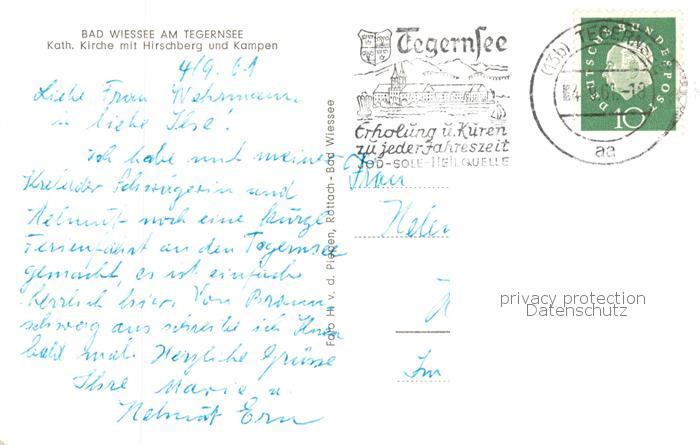 BAD WIESSEE AM TEGERNSEE
Kath. Kirche mit Hirschberg und Kampen
4/9. 61
Liebe Frau Wehrmann,
u liebe Ilse!
Ich habe mit meiner
Krefelder Schwägerin und
Helmut noch eine kurze
Ferienfahrt an den Tegernsee
gemacht, es ist einfach
herrlich hier. Von Braun-
schweig aus schreibe ich Ihnen
bald mal. Herzliche Grüsse
Ihre Marie u.
Helmut Ern
Foto H. v. d. Piepen, Rottach - Bad Wiessee
Tegernsee
Erholung u. Kuren
zu jeder Jahreszeit
JOD-SOLE-HEILQUELLE
(13b) TEGERNS
aa
DEUTSCHE BUNDESPOST
10
Frau
privacy protection
Datenschutz